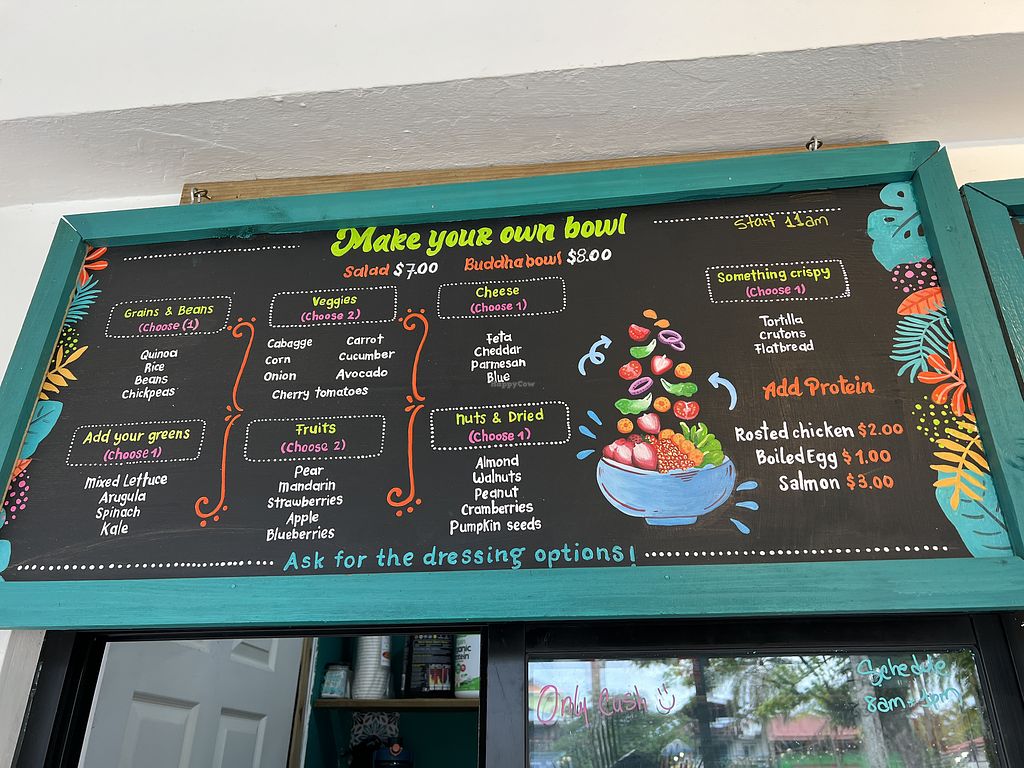 Make your own bowl
Start 11am
Salad $7.00 Buddha bowl $8.00
Grains & Beans
(Choose (1)
Quinoa
Rice
Beans
Chickpeas
Add your greens
(Choose 1)
Mixed Lettuce
Arugula
Spinach
Kale
Veggies
(Choose 2)
Cabagge Carrot
Corn Cucumber
Onion Avocado
Cherry tomatoes
Fruits
(Choose 2)
Pear
Mandarin
Strawberries
Apple
Blueberries
Cheese
(Choose 1)
Feta
Cheddar
Parmesan
Blue
HappyCow
Nuts & Dried
(Choose 1)
Almond
Walnuts
Peanut
Cramberries
Pumpkin seeds
Something crispy
(Choose 1)
Tortilla
Crutons
Flatbread
Add Protein
Rosted chicken $2.00
Boiled Egg $1.00
Salmon $3.00
Ask for the dressing options!
Only Cash
Schedule
8am